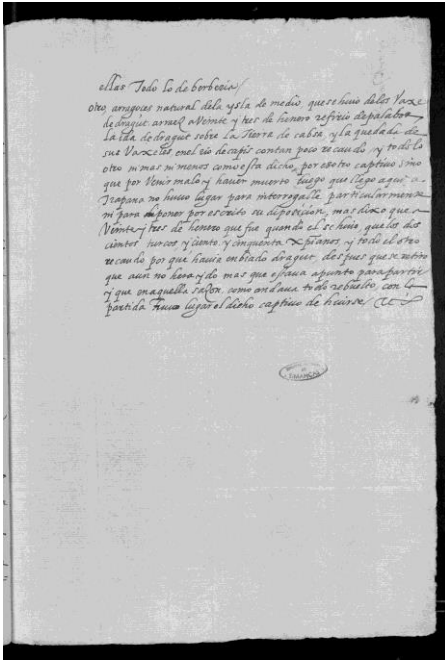 ellas Todo lo de berberia /
otro, aragoces natural dela ysla de medio, que se huio delos Vaxe
de dragut arraez a Veinte y tres de henero refirio de palabra
la ida de dragut sobre la Tierra de cabsa, y la quedada de
sus Vaxeles, en el rio de capis con tan poco recaudo, y todo lo
otro ni mas ni menos como esta dicho, por esotro captivo sino
que por Venir malo y haver muerto luego que llego aqui a
Trapana no huvo lugar para interrogalle particularmente
ni para deponer por escrito su diposicion, mas dixo que a
Veinte y tres de henero que fue quando el se huio, que los dos
cientos turcos y ciento y cinquenta xpianos y todo el otro
recaudo por que havie enbiado dragut, despues que se retiro
que aun no hera ydo mas que estava apunto para partir
y que en aquella sazon, como andava todo rebuelto, con la
partida tuvo lugar el dicho captivo de huirse /
SIMANCAS